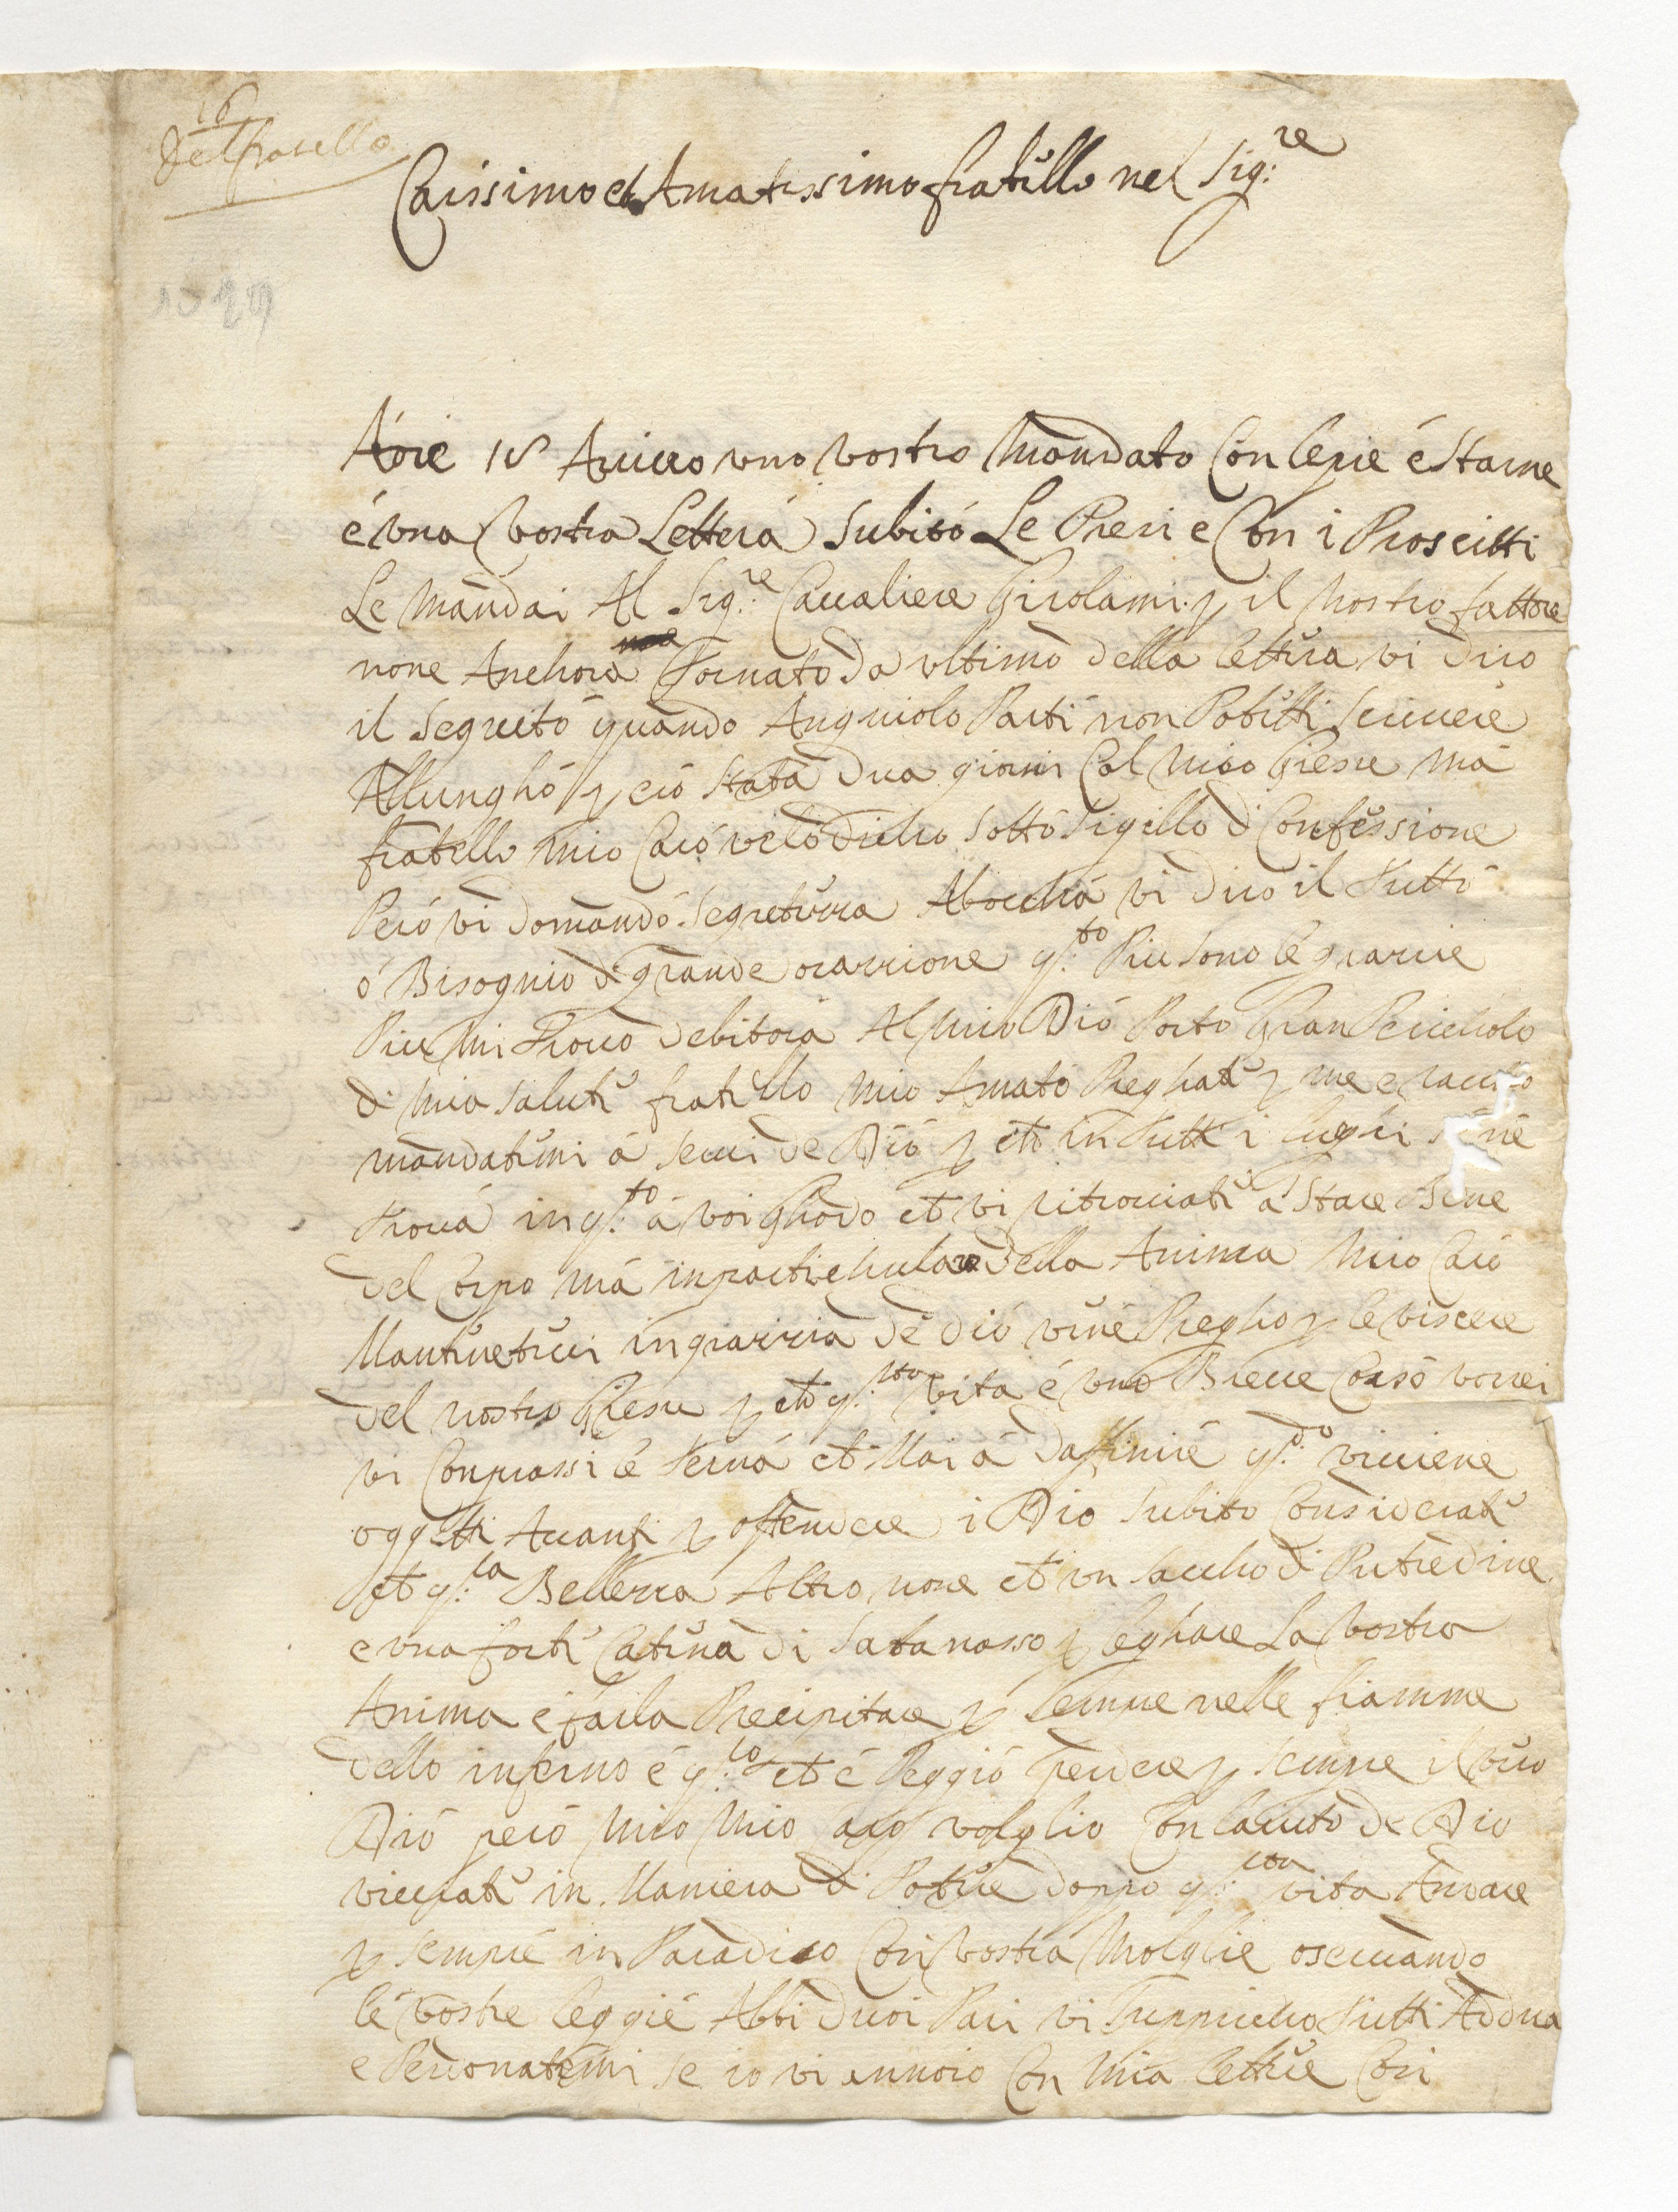 16
Del fratello
Carissimo et Amatissimo fratello nel Sig:re
Aóre 18 Arivo vno vostro Mandato Con Lepre é Starne
é vna vostra Letterá Subitó Le Presi e Con i Prosciutti
Le Mandai Al Sig:re Cavaliere Girolami p il Nostro fattore
none Anchora Tornato da vltimo della lettera vi diro
il Seguitó quando Angniolo Partí non Potetti Scrivere
Allunghó p eró Stata dua giorni Col Mioo Giesu má
fratello mio Caró velo dicho Sottó Sigillo di Confessione
Peró vi domandó Segreterra Abocchá vi diro il Tuttó
ó Bisognio di grande orazzione q:to Piu Sono le grazzie
Piu Mi Trovo debitora Al Mio Dió Porto Gran Pericholo
di Mia Salute fratello Mio Amato Preghate p me e racco
mandatemi á Servi de Dió p ch in Tutti i lughi Sene
trová in q:to á voi Ghodo ch vi ritroviate a Stare Bene
del Corpo má inpartichulare della Anima Mio Caró
Mantenetevi in grazzia de dió vene Pregho p le viscere
del nostro Giesu p ch q:sta vita é vno Breve Corso vorrei
vi Conprassi é Terná ch Mai á daffinire q:do viviene
oggetti Avanti p offendere i Dio Subito Considerate
ch q:la Bellezza Altro none ch vn Saccho di Putredine
e vna forte Catena di Satanasso p leghare La vostra
Anima é farla Precipitare p Sempre nelle fiamme
dello inferno é q:lo ch é Peggió perdere p Senpre il vro
Dió peró Mio Mio voglio Con laiuto de Dio
viviate in Maniera di Potere doppo q:sta vita Andare
p Sempre in Paradiso Con vostra Moglie oservando
lé vostre leggie Abbi duoi Pari vi Suppricho Tutti Addua
e Perdonatemi Se io vi annoio Con Mia lettere Con